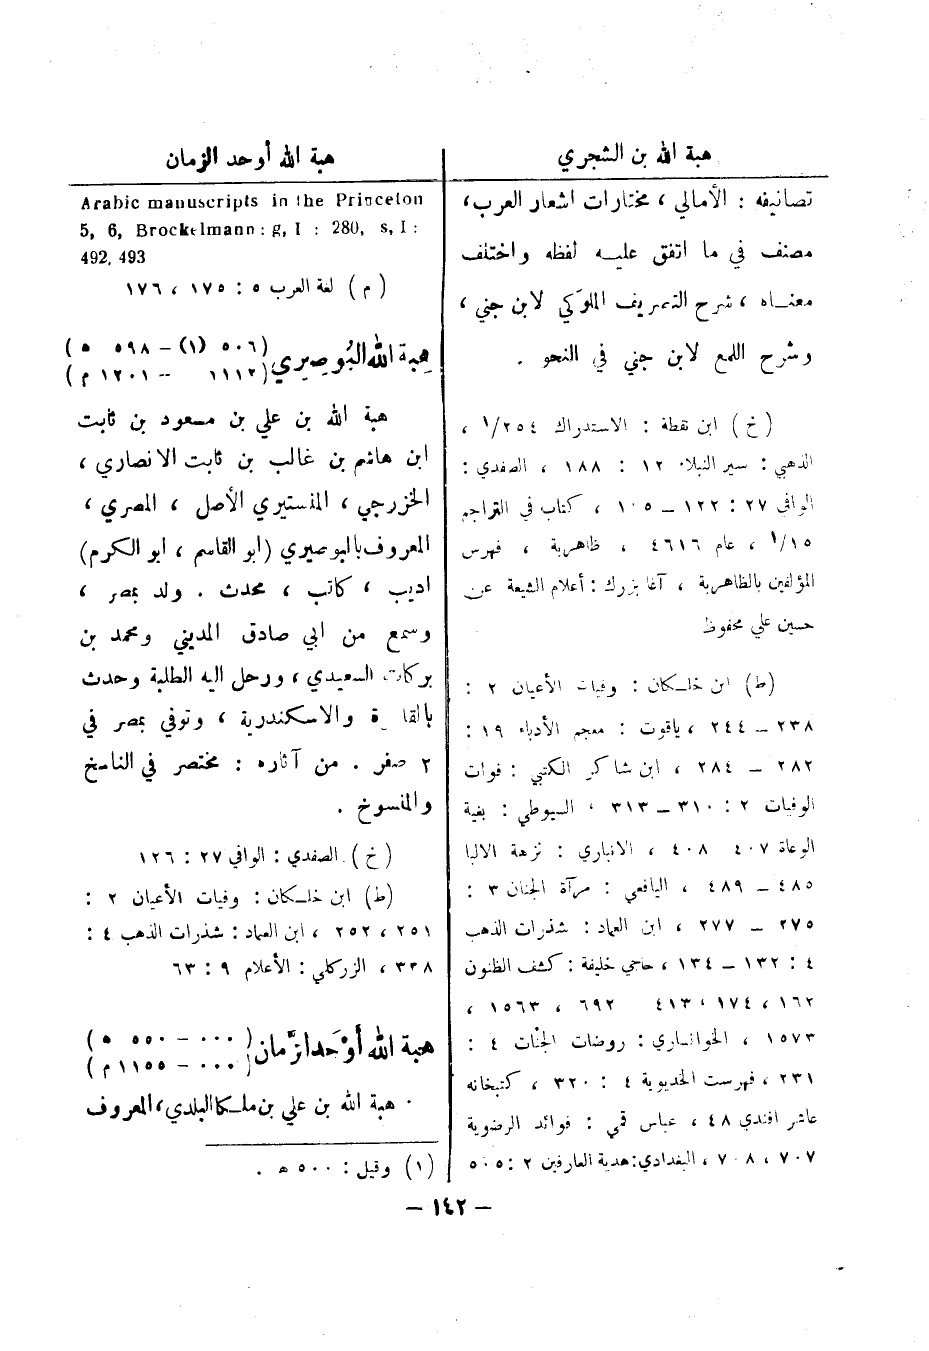 هبة الله بن الشجري
تصانيفه : الأمالي ، مختارات اشعار العرب ،
مصنف في ما اتفق عليه لفظه واختلف
معناه ، شرح التصريف الملوكي لابن جني ،
وشرح اللمع لابن جني في النحو .
(خ) ابن نقطة : الاستدراك ٢٥٤/١ ،
الذهبي : سير النبلاء ١٢ : ١٨٨ ، الصفدي :
الوافي ٢٧ : ١٢٢ – ١٠٥ ، كتاب في التراجم
١/١٥ ، عام ٤٦١٦ ، ظاهرية ، فهرس
المؤلفين بالظاهرية ، آغا بزرك : أعلام الشيعة عن
حسين علي محفوظ
(ط) ابن خلكان : وفيات الأعيان ٢ :
٢٣٨ – ٢٤٤ ، ياقوت : معجم الأدباء ١٩ :
٢٨٢ – ٢٨٤ ، ابن شاكر الكتبي : فوات
الوفيات ٢ : ٣١٠ – ٣١٣ ، السيوطي : بغية
الوعاة ٤٠٧ ٤٠٨ ، الانباري : نزهة الالبا
٤٨٥ – ٤٨٩ ، اليافعي : مرآة الجنان ٣ :
٢٧٥ – ٢٧٧ ، ابن العماد : شذرات الذهب
٤ : ١٣٢ – ١٣٤ ، حاجي خليفة : كشف الظنون
١٦٢ ، ١٧٤ ، ٤١٣ ٦٩٢ ، ١٥٦٣ ،
١٥٧٣ ، الخوانساري : روضات الجنات ٤ :
٢٣١ ، فهرست الخديوية ٤ : ٣٢٠ ، كتبخانه
عاشر افندي ٤٨ ، عباس قمي : فوائد الرضوية
٧٠٧ ، ٧٠٨ ، البغدادي : هدية العارفين ٢ : ٥٠٥
هبة الله أوحد الزمان
Arabic manuscripts in the Princeton
5, 6, Brockelmann : g, I : 280, s, I :
492, 493
(م) لغة العرب ٥ : ١٧٥ ، ١٧٦
هبة الله البُوصيري (٥٠٦ (١) – ٥٩٨ ه)
(١١١٢ – ١٢٠١ م)
هبة الله بن علي بن مسعود بن ثابت
ابن هاشم بن غالب بن ثابت الانصاري ،
الخزرجي ، المنستيري الأصل ، المصري ،
المعروف بالبوصيري (ابو القاسم ، ابو الكرم)
اديب ، كاتب ، محدث . ولد بمصر ،
وسمع من ابي صادق المديني ومحمد بن
بركات السعيدي ، ورحل اليه الطلبة وحدث
بالقاهرة والاسكندرية ، وتوفي بمصر في
٢ صفر . من آثاره : مختصر في الناسخ
والمنسوخ .
(خ) الصفدي : الوافي ٢٧ : ١٢٦
(ط) ابن خلكان : وفيات الأعيان ٢ :
٢٥١ ، ٢٥٢ ، ابن العماد : شذرات الذهب ٤ :
٣٣٨ ، الزركلي : الأعلام ٩ : ٦٣
هبة الله أَوْحَد الزَّمان (٠٠٠ – ٥٥٠ ه)
(٠٠٠ – ١١٥٥ م)
هبة الله بن علي بن ملكا البلدي ، المعروف
(١) وقيل : ٥٠٠ ه .
– ١٤٢ –